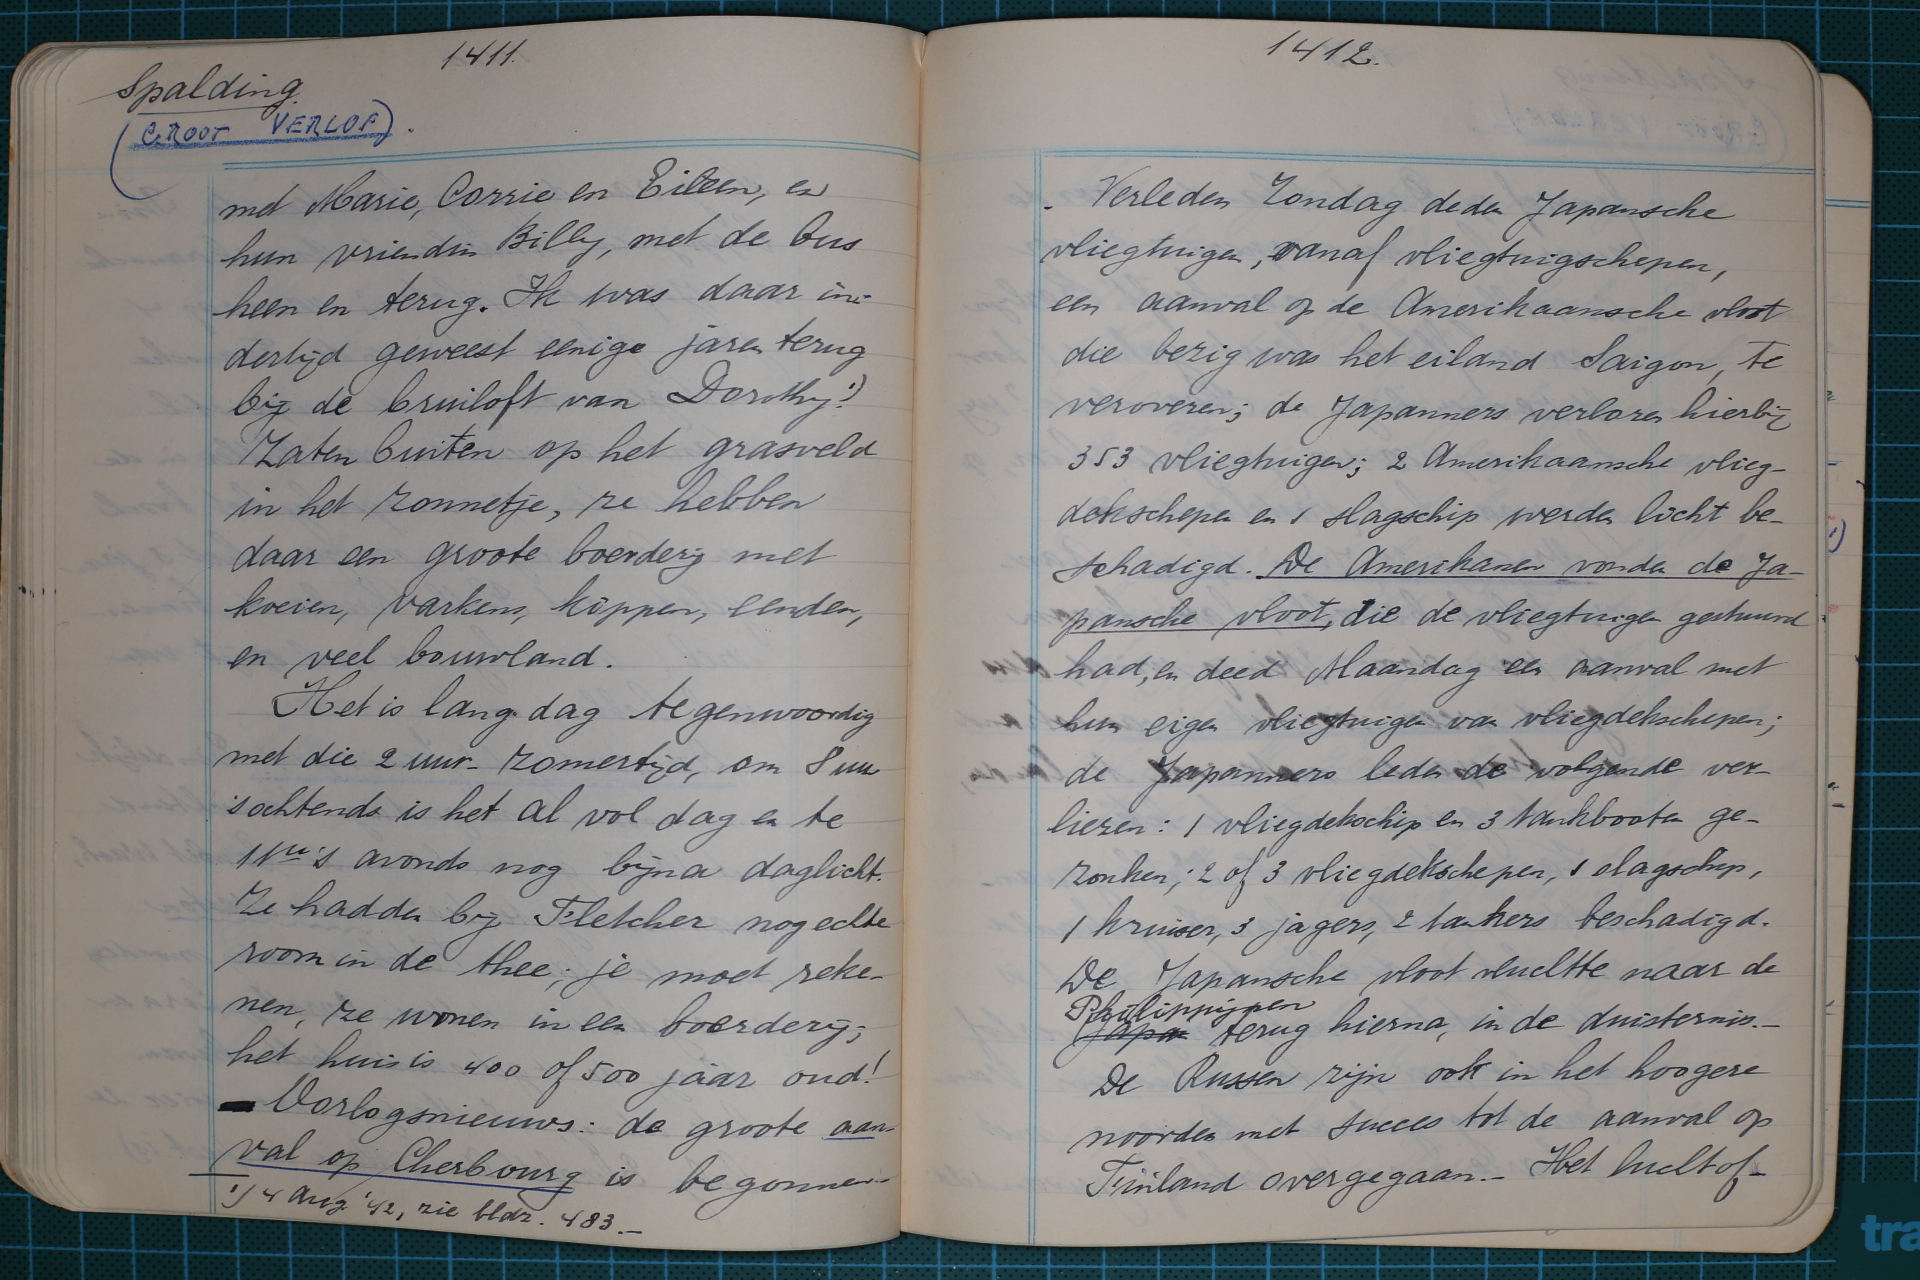 1411.
Spalding.
(GROOT VERLOF).
met Marie, Corrie en Eileen, en
hun vriendin Billy, met de bus
heen en terug. Ik was daar in-
dertijd geweest eenige jaren terug
bij de bruiloft van Dorothy! ¹)
Zaten buiten op het grasveld
in het zonnetje, ze hebben
daar een groote boerderij met
koeien, varkens, kippen, eenden,
en veel bouwland.
Het is lang dag tegenwoordig
met die 2 uur zomertijd, om 8 uur
'sochtends is het al vol dag en te
11ᵘʳ 's avonds nog bijna daglicht.
Ze hadden bij Fletcher nog echte
room in de thee; je moet reke-
nen, ze wonen in een boerderij;
het huis is 400 of 500 jaar oud!
— Oorlogsnieuws: de groote aan-
val op Cherbourg is begonnen.-
¹) 4 Aug. '42, zie bldz. 483.—
1412.
. Verleden Zondag deden Japansche
vliegtuigen, vanaf vliegtuigschepen,
een aanval op de Amerikaansche vloot
die bezig was het eiland Saigon, te
veroveren; de Japanners verloren hierbij
353 vliegtuigen; 2 Amerikaansche vlieg-
dekschepen en 1 slagschip werden licht be-
schadigd. De Amerikanen vonden de Ja-
pansche vloot, die de vliegtuigen gestuurd
had, en deed Maandag een aanval met
hun eigen vliegtuigen van vliegdekschepen;
de Japanners leden de volgende ver-
liezen: 1 vliegdekschip en 3 tankbooten ge-
zonken; 2 of 3 vliegdekschepen, 1 slagschip,
1 kruiser, 3 jagers, 2 tankers beschadigd.
De Japansche vloot vluchtte naar de
Philippijnen
Japan terug hierna, in de duisternis.—
De Russen zijn ook in het hoogere
noorden met succes tot de aanval op
Finland overgegaan.— Het luchtof-
tra